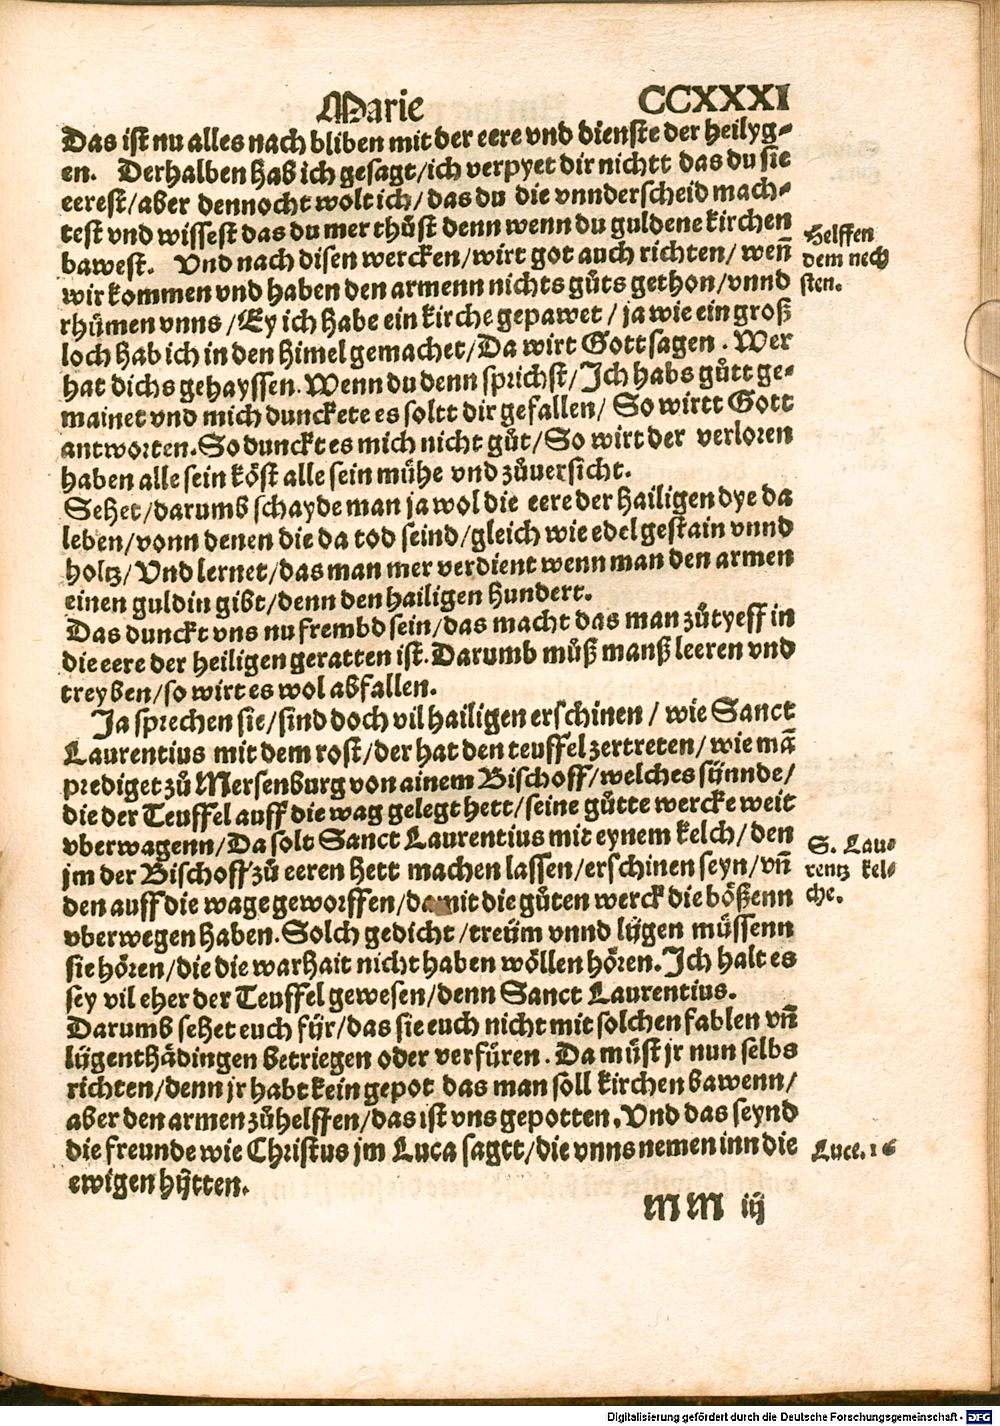 Marie CCXXXI
Das ist nu alles nach bliben mit der eere vnd dienste der heilyg-
en. Derhalben hab ich gesagt/ich verpyet dir nichtt das du sie
eerest/aber dennocht wolt ich/das du die vnnderscheid mach-
test vnd wissest das du mer thůst denn wenn du guldene kirchen
bawest. Vnd nach disen wercken/wirt got auch richten/wen̄
wir kommen vnd haben den armenn nichts gůts gethon/vnnd
rhůmen vnns/Ey ich habe ein kirche gepawet/ja wie ein groß
loch hab ich in den himel gemachet/Da wirt Gott sagen. Wer
hat dichs gehayssen. Wenn du denn sprichst/Ich habs gůtt ge-
mainet vnd mich dunckete es soltt dir gefallen/So wirtt Gott
antworten. So dunckt es mich nicht gůt/So wirt der verloren
haben alle sein köst alle sein mühe vnd zůuersicht.
Sehet/darumb schayde man ja wol die eere der hailigen dye da
leben/vonn denen die da tod seind/gleich wie edel gestain vnnd
holtz/Vnd lernet/das man mer verdient wenn man den armen
einen guldin gibt/denn den hailigen hundert.
Das dunckt vns nu frembd sein/das macht das man zůtyeff in
die eere der heiligen geratten ist. Darumb můß manß leeren vnd
treyben/so wirt es wol abfallen.
Ja sprechen sie/sind doch vil hailigen erschinen/wie Sanct
Laurentius mit dem rost/der hat den teuffel zertreten/wie mā
prediget zů Mersenburg von ainem Bischoff/welches sünnde/
die der Teuffel auff die wag gelegt hett/seine gůtte wercke weit
vberwagenn/Da solt Sanct Laurentius mit eynem kelch/den
jm der Bischoff zů eeren hett machen lassen/erschinen seyn/vn̄
den auff die wage geworffen/damit die gůten werck die bößenn
vberwegen haben. Solch gedicht/treüm vnnd lügen müssenn
sie hören/die die warhait nicht haben wöllen hören. Ich halt es
sey vil eher der Teuffel gewesen/denn Sanct Laurentius.
Darumb sehet euch für/das sie euch nicht mit solchen fablen vn̄
lügenthädingen betriegen oder verfüren. Da müst jr nun selbs
richten/denn jr habt kein gepot das man soll kirchen bawenn/
aber den armen zůhelffen/das ist vns gepotten. Vnd das seynd
die freunde wie Christus jm Luca sagtt/die vnns nemen inn die
ewigen hütten.
mm iij
Helffen
dem nech
sten.
S. Lau-
rentz kel-
che.
Luce. 16
Digitalisierung gefördert durch die Deutsche Forschungsgemeinschaft - DFG